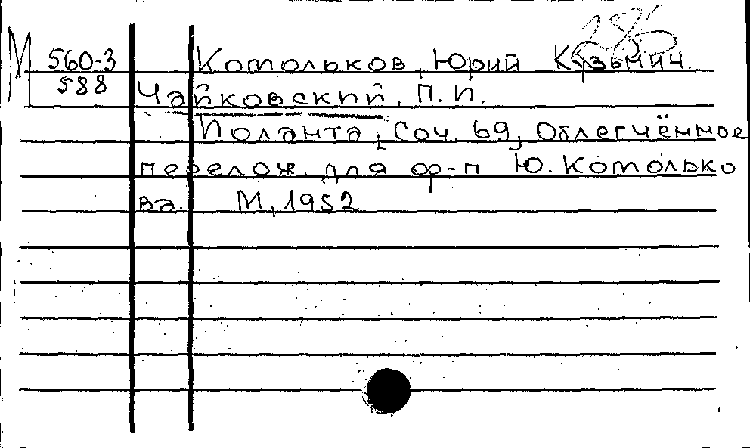 286
М 560-3 Комольков, Юрий Кузьмич.
588 Чайковский, П.И.
Иоланта, Соч. 69, Облегчённое
перелож. для ф-п Ю. Комолько
ва. М, 1952